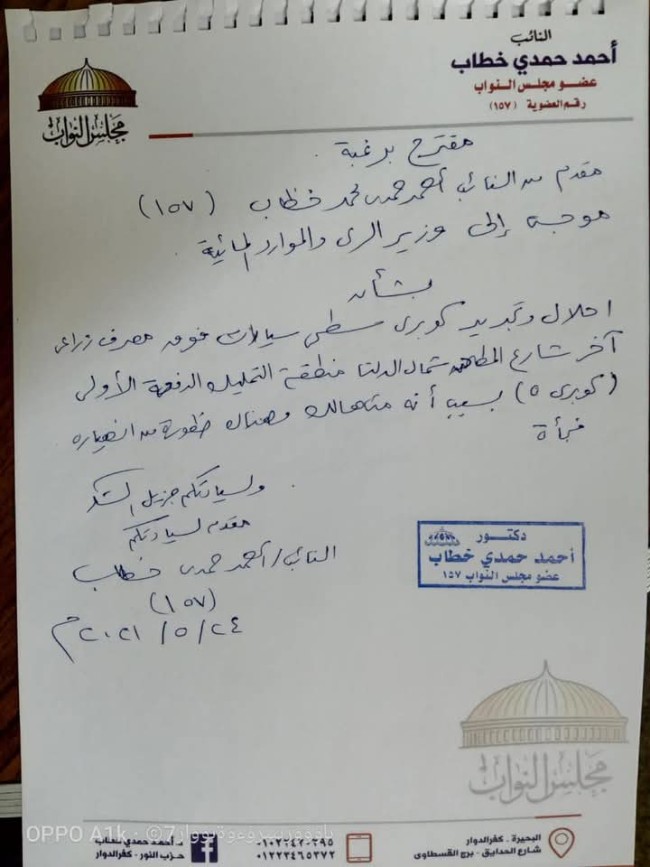 النائب
أحمد حمدي خطاب
عضو مجلس النواب
رقم العضوية (١٥٧)
مجلس النواب
مقترح برغبة
مقدم من النائب أحمد حمدى محمد خطاب (١٥٧)
موجه إلى وزير الرى والموارد المائية
بشأن
احلال وتجديد كوبرى سطحى سيارات فوق مصرف زراعى
آخر شارع شمال الدلتا منطقة التمليك الدفعة الأولى
(كوبرى ٥) بسبب أنه متهالك وهناك خطورة من انهياره
فجأة
ولسيادتكم جزيل الشكر
مقدم لسيادتكم
النائب/ أحمد حمدى خطاب
(١٥٧)
٢٤/٥/٢٠٢١م
دكتور
أحمد حمدي خطاب
عضو مجلس النواب ١٥٧
مجلس النواب
البحيرة . كفرالدوار
شارع الحدايق - برج القسطاوى
د. أحمد حمدي خطاب
حزب النور - كفرالدوار
OPPO A1k